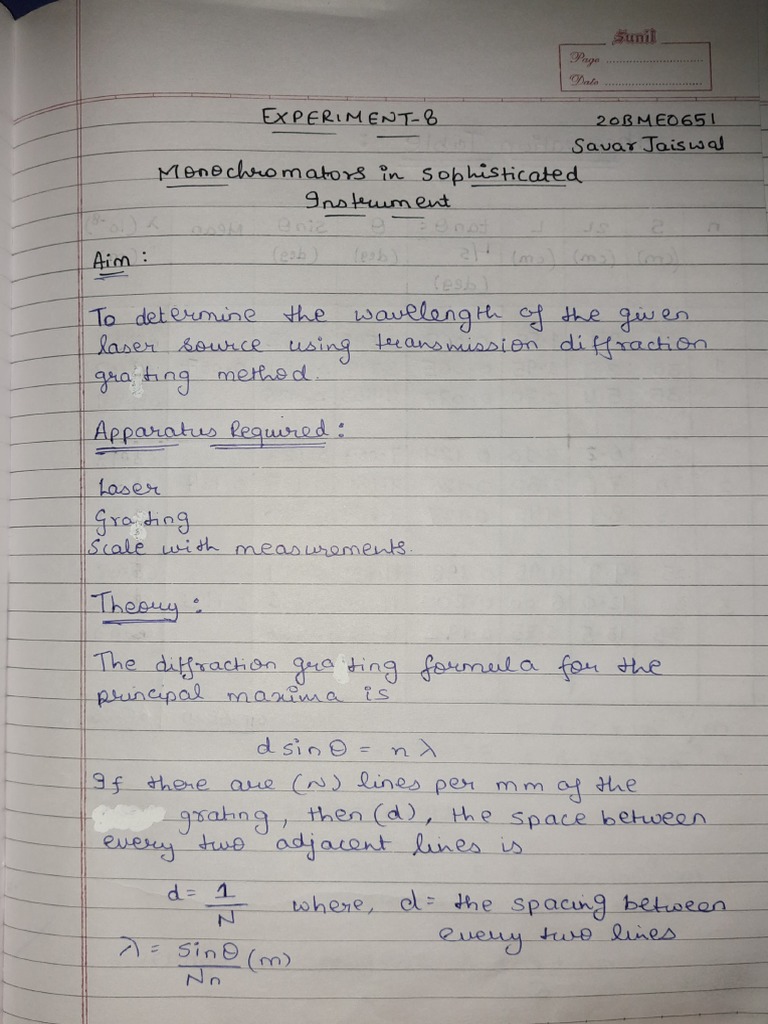 Sunil
Page
Date
EXPERIMENT-8
20BME0651
Savar Jaiswal
Monochromators in Sophisticated
Instrument
Aim:
To determine the wavelength of the given
laser source using transmission diffraction
grating method.
Apparatus Required:
Laser
Grating
Scale with measurements.
Theory:
The diffraction grating formula for the
principal maxima is
d sinθ = nλ
If there are (N) lines per mm of the
grating, then (d), the space between
every two adjacent lines is
d = 1/N where, d = the spacing between
every two lines
λ = sinθ/Nn (m)